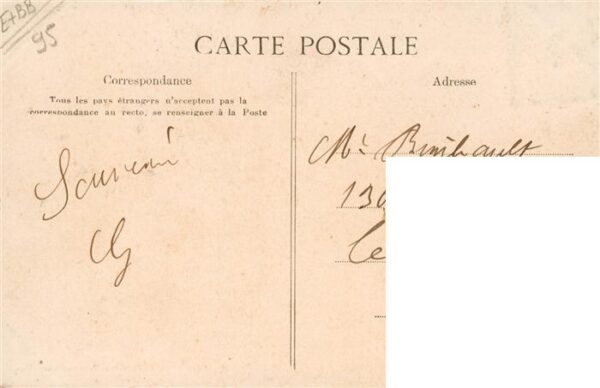 E+BB
95
CARTE POSTALE
Correspondance
Tous les pays étrangers n'acceptent pas la
correspondance au recto, se renseigner à la Poste
Adresse
Souvenir
Mr
130
Le